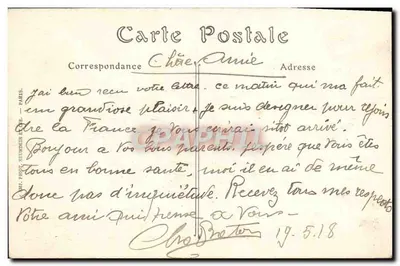 Carte Postale
Correspondance
Adresse
Chère Amie
j'ai bien reçu votre lettre. ce matin qui m'a fait
un grandiose plaisir. je suis designer pour rejoin
dre la France je vous ecrirais sitot arrivé.
Bonjour a Vos bons parents. j'espéré que Vous êtes
tous en bonne santé, moi il en ai de même
donc pas d'inquiétude. Recevez tous mes respects
Votre ami qui pense a Vous
19.5.18